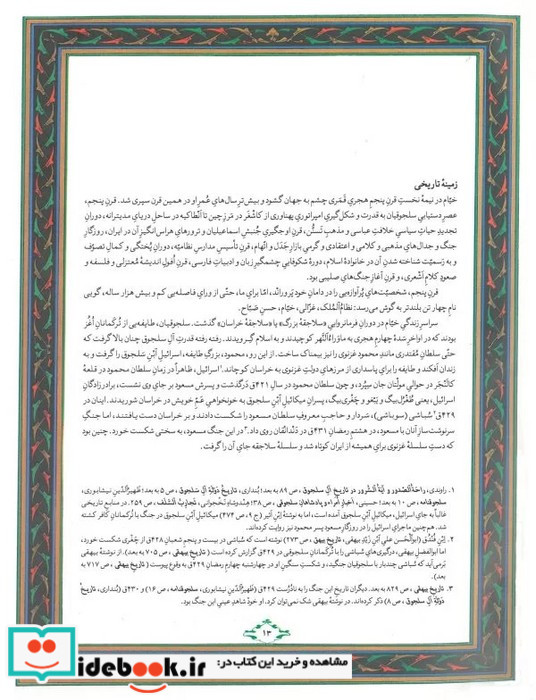 زمینهٔ تاریخی
خیّام در نیمهٔ نخستِ قرنِ پنجمِ هجریِ قمری چشم به جهان گشود و بیش‌ترِ سال‌های عُمرِ او در همین قرن سپری شد. قرنِ پنجم،
عصرِ دستیابیِ سلجوقیان به قدرت و شکل‌گیریِ امپراتوریِ پهناوری از کاشغَر در مَرزِ چین تا اَنطاکیه در ساحلِ دریای مدیترانه، دورانِ
تجدیدِ حیاتِ سیاسیِ خلافتِ عباسی و مذهبِ تَسنُّن، قرنِ اوجگیریِ جُنبشِ اسماعیلیان و ترورهای هراس‌انگیزِ آن در ایران، روزگارِ
جنگ و جدال‌های مذهبی و کلامی و اعتقادی و گرمیِ بازارِ جَدَل و اتّهام، قرنِ تأسیسِ مدارسِ نظامیّه، دورانِ پُختگی و کمالِ تصوّف
و به رَسمیّت شناخته شدنِ آن در خانوادهٔ اسلام، دورهٔ شکوفاییِ چشمگیرِ زبان و ادبیاتِ فارسی، قرنِ اُفولِ اندیشهٔ مُعتزلی و فلسفه و
صعودِ کلامِ اَشعری، و قرنِ آغازِ جنگ‌های صلیبی بود.
قرنِ پنجم، شخصیت‌های پُرآوازه‌یی را در دامانِ خود پَروراند، امّا برای ما، حتّی از ورای فاصله‌یی کم و بیش هزار ساله، گویی
نامِ چهار تن بلندتر به گوش می‌رسد: نظامُ‌المُلک، غَزّالی، خیّام، حسنِ صَبّاح.
سراسرِ زندگیِ خیّام در دورانِ فرمانرواییِ «سلاجقهٔ بزرگ» یا «سلاجقهٔ خراسان» گذشت. سلجوقیان، طایفه‌یی از تُرکمانانِ اُغُز
بودند که در اواخرِ شدهٔ چهارمِ هجری به ماوراءُالنّهر کوچیدند و به اسلام گرویدند. رفته رفته قدرتِ آلِ سلجوق چنان بالا گرفت که
حتّی سلطانِ مُقتدری مانندِ محمود غزنوی را نیز بیمناک ساخت. از این رو، محمود، بزرگِ طایفه، اسرائیل اِبنِ سلجوق را گرفت و به
زندان اَفکند و طایفه را برای پاسداری از مرزهای دولتِ غزنوی به خراسان کوچاند.۱ اسرائیل، ظاهراً در زمانِ سلطان محمود در قلعهٔ
کالَنجَر در حوالیِ مولْتان جان سِپُرد، و چون سلطان محمود در سالِ ۴۲۱ق دَرگذشت و پسرش مسعود بر جایِ وی نشست، برادرزادگانِ
اسرائیل، یعنی طُغرُل‌بیگ و یَبغو و چَغری‌بیگ، پسرانِ میکائیل اِبنِ سلجوق به خونخواهیِ عَمِّ خویش در خراسان شوریدند. اینان در
۴۲۹ق۲ سُباشی (سوباشی)، سَردار و حاجبِ معروفِ سلطان مسعود را شکست دادند و بر خراسان دست یافتند، اما جنگِ
سرنوشت‌سازِ آنان با مسعود، در هشتمِ رمضانِ ۴۳۱ق در دَندانَقان روی داد.۳ در این جنگ، مسعود، به سختی شکست خورد. چنین بود
که دستِ سلسلهٔ غزنوی برای همیشه از ایران کوتاه شد و سلسلهٔ سلاجقه جایِ آن را گرفت.
۱. راوندی، راحَةُ‌الصّدور و آیَةُ السُّرور در تاریخِ آلِ سلجوق، ص ۸۹ به بعد؛ بُنداری، تاریخِ دولَةِ آلِ سلجوق، ص ۵ به بعد؛ ظهیرالدّینِ نیشابوری،
سلجوقنامه، ص ۱۰ به بعد؛ حسینی، اَخبارُ اُمراء و پادشاهانِ سلجوقی، ص ۳۸؛ هِندوشاهِ نَخجَوانی، تجارِبُ السَّلَف، ص ۲۵۹. در منابعِ تاریخی
غالباً به جای اسرائیل، میکائیل اِبنِ سلجوق آمده است، اما به نوشتهٔ اِبنِ اَثیر (ج ۹، ص ۴۷۴) میکائیل اِبنِ سلجوق در جنگ با تُرکمانانِ کافر کشته
شد. هم‌چنین ماجرای اسرائیل را در روزگارِ مسعود پسرِ محمود نیز روایت کرده‌اند.
۲. اِبنِ فُندُق (ابوالحسن علی اِبنِ زیدِ بیهقی، تاریخِ بیهق، ص ۲۷۳) نوشته است که سُباشی در بیست و پنجمِ شعبانِ ۴۲۸ق از چَغری شکست خورد،
اما ابوالفضل بیهقی، درگیری‌های سُباشی را با تُرکمانانِ سلجوقی در ۴۲۹ق گزارش کرده است (تاریخِ بیهقی، ص ۷۰۵ به بعد). از نوشتهٔ بیهقی
بَرمی‌آید که سُباشی چندبار با سلجوقیان جنگید، و شکستِ سنگینِ او در چهارشنبه چهارمِ رمضانِ ۴۲۹ق به وقوع پیوست (تاریخِ بیهقی، ص ۷۱۷ به
بعد).
۳. تاریخِ بیهقی، ص ۸۲۹ به بعد. دیگران تاریخِ این جنگ را به نادُرُست ۴۲۹ق (ظهیرُالدّینِ نیشابوری، سلجوقنامه، ص ۱۶) و ۴۳۰ق (بُنداری، تاریخُ
دولَةِ آلِ سلجوق، ص ۸) ذکر کرده‌اند. در نوشتهٔ بیهقی شک نمی‌توان کرد. او خود شاهدِ عینیِ این جنگ بود.
۱۳
مشاهده و خرید این کتاب در:
idebook.ir